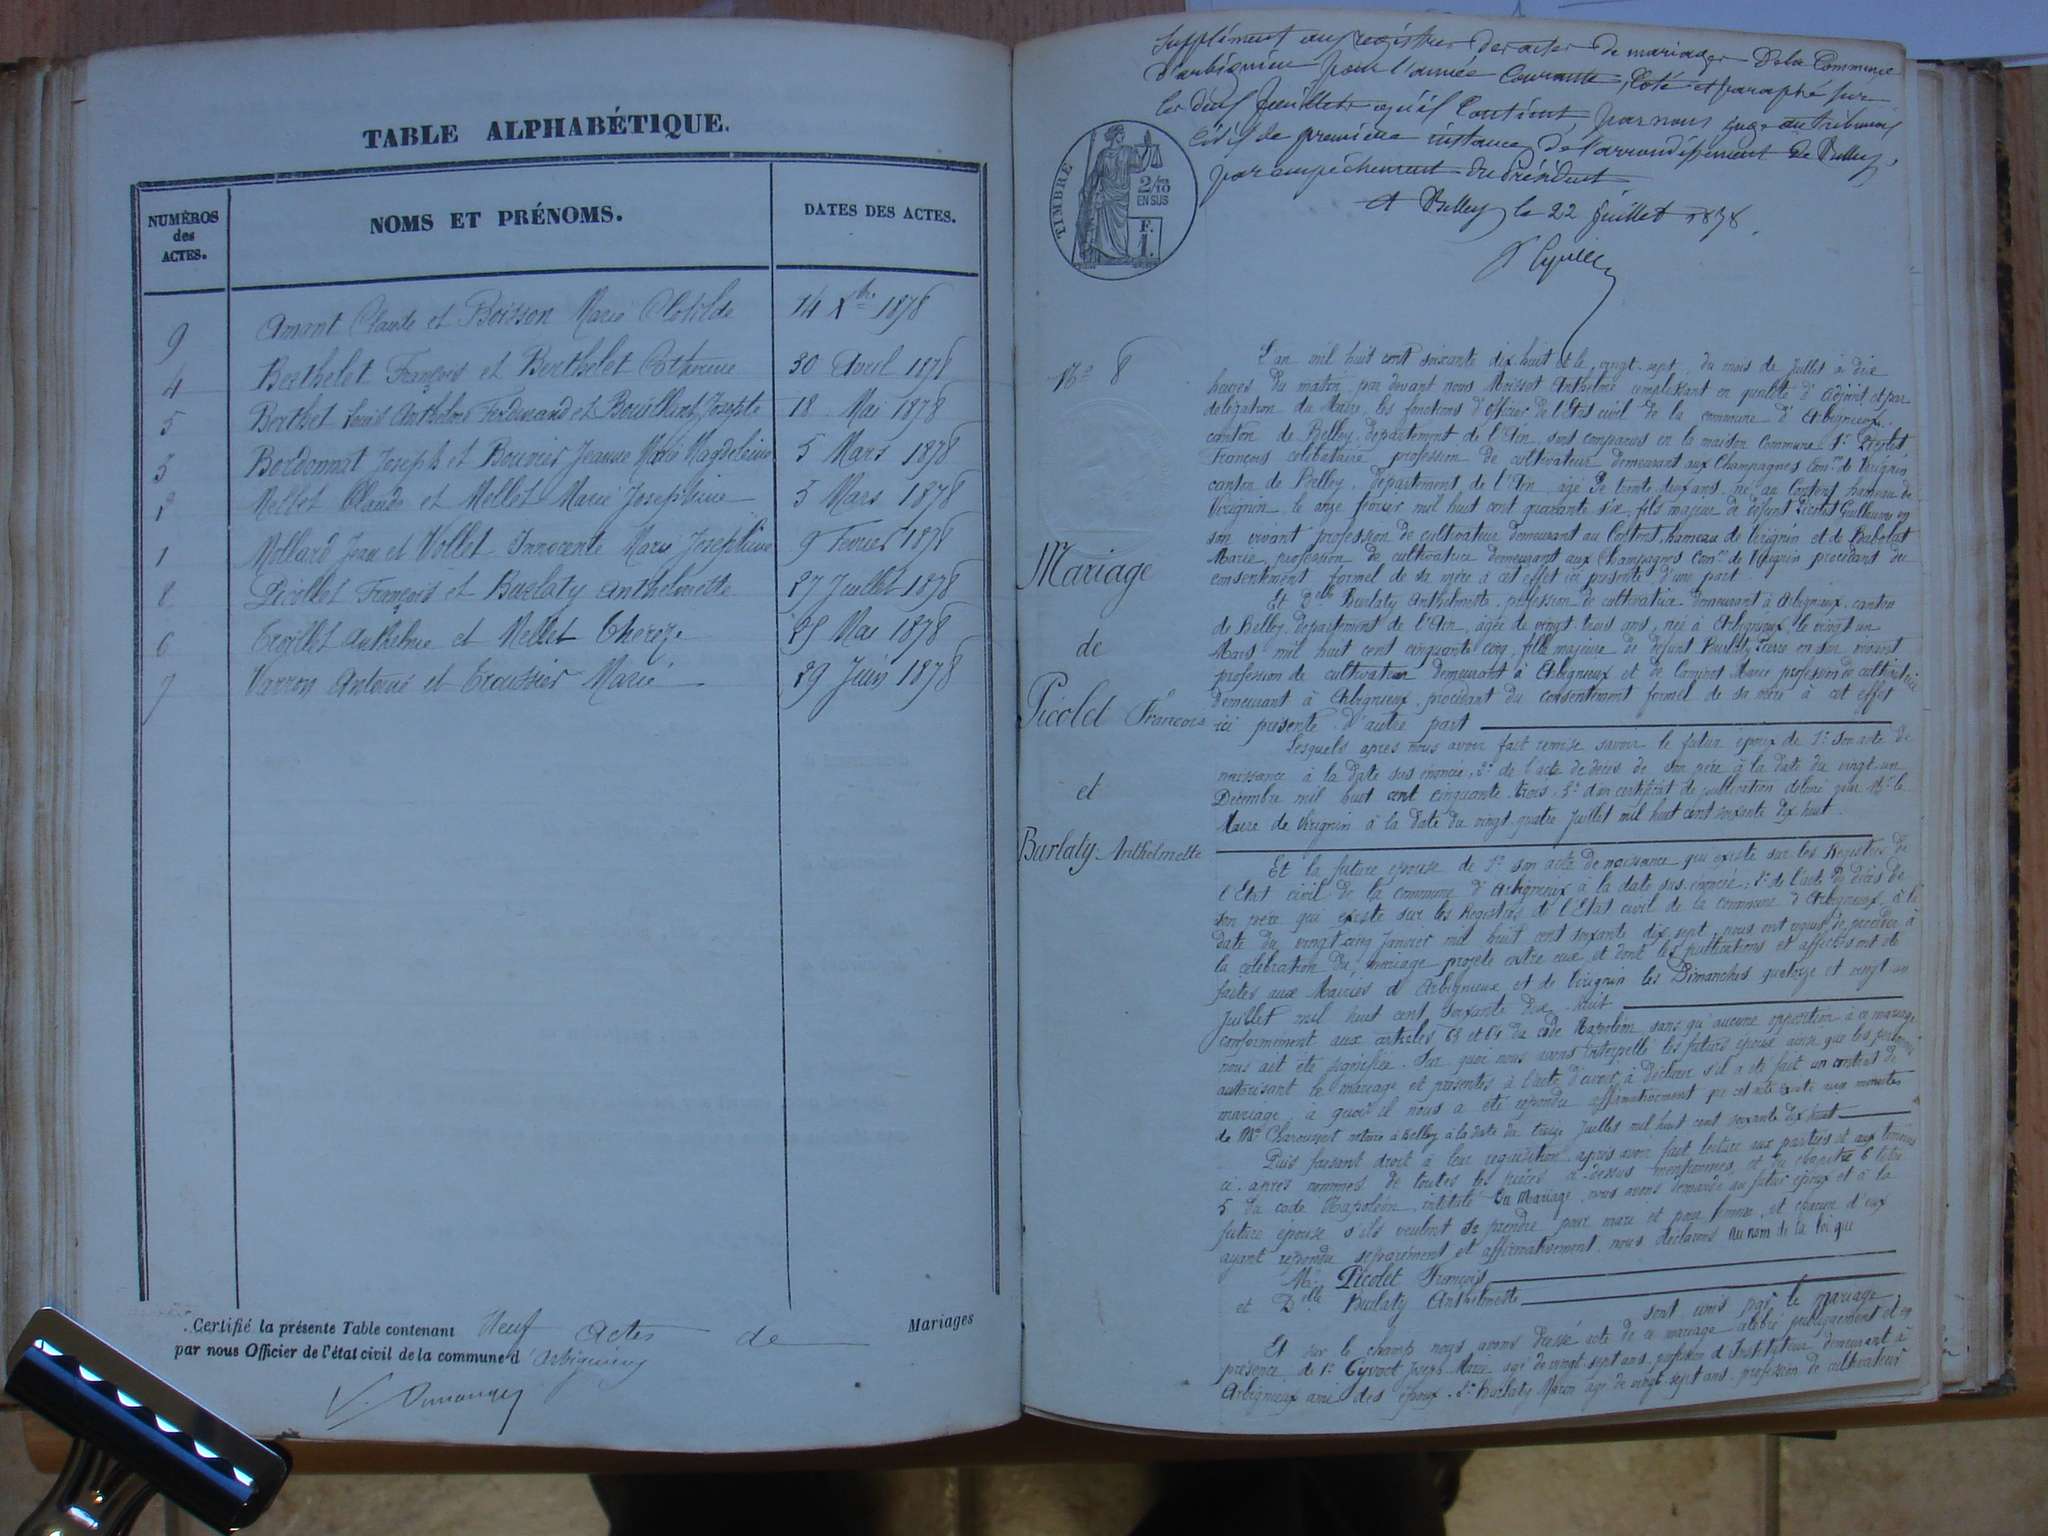 TABLE ALPHABÉTIQUE.
NUMÉROS
des
ACTES.
NOMS ET PRÉNOMS.
DATES DES ACTES.
9 Amant Claude et Boisson Marie Clotilde 14 Xbre 1878
4 Berthelet François et Berthelet Catherine 30 Avril 1878
5 Berthet Louis Anthelme Ferdinand et Josephte 18 Mai 1878
3 Bordonnat Joseph et Bouvier Jeanne Marie Magdeleine 5 Mars 1878
Mellet Claude et Mellet Marie Josephine 5 Mars 1878
1 Mollard Jean et Vollet Innocente Marie Josephine 9 Fevrier 1878
8 Picollet François et Burlaty Anthelmette 27 Juillet 1878
6 Anthelme et Mellet 25 Mai 1878
7 Varron Antoine et Troussier Marie 29 Juin 1878
Certifié la présente Table contenant Neuf Actes de Mariages
par nous Officier de l'état civil de la commune d'Arbignieu
Supplément aux registres des actes de mariages De la Commune
d'arbignieu pour l'année Courante, Coté et paraphé sur
les deux feuillets qu'il Contient, par nous juge au tribunal
Civil de première instance de l'arrondissement de Belley,
par empêchement du Président
A Belley le 22 juillet 1878.
TIMBRE
2/10
EN SUS
F.
1.
No 8
Mariage
de
Picolet François
et
Burlaty Anthelmette
L'an mil huit cent soixante dix huit et le vingt sept du mois de Juillet à dix
heures du matin, par devant nous Moissot Anthelme remplissant en qualité d'adjoint et par
delegation du Maire, les fonctions d'officier de l'Etat civil de la commune d'Arbignieux
canton de Belley, departement de l'Ain, sont comparus en la maison commune 1° Picolet
François célibataire profession de cultivateur demeurant aux Champagnes Comne de Virignin
canton de Belley, département de l'Ain, agé de trente deux ans, né au Content hameau de
Virignin le onze fevrier mil huit cent quarante six, fils majeur de defunt Picolet Guillaume en
son vivant profession de cultivateur demeurant au Content, hameau de Virignin et de Babolat
Marie, profession de cultivatrice demeurant aux Champagnes Comne de Virignin procédant du
consentement formel de sa mère à cet effet ici présente d'une part
Et Delle Burlaty Anthelmette, profession de cultivatrice demeurant à Arbignieux, canton
de Belley, departement de l'Ain, agée de vingt trois ans, née à Arbignieux le vingt un
Mars mil huit cent cinquante cinq, fille majeure de défunt Burlaty Pierre en son vivant
profession de cultivateur demeurant à Arbignieux et de Caminet Marie profession de cultivatrice
demeurant à Arbignieux, procédant du consentement formel de sa mère à cet effet
ici présente d'autre part
Lesquels après nous avoir fait remise savoir le futur époux de 1° son acte de
naissance à la date sus énoncée, 2° de l'acte de décès de son père à la date du vingt un
Décembre mil huit cent cinquante trois, 3° d'un certificat de publication délivré par Mr le
Maire de Virignin à la date du vingt quatre Juillet mil huit cent soixante dix huit.
Et la future épouse de 1° son acte de naissance qui existe sur les Registres de
l'Etat civil de la commune d'Arbignieux à la date sus énoncée, 2° de l'acte de décès de
son père qui existe sur les Registres de l'Etat civil de la commune d'Arbignieux, à la
date du vingt cinq Janvier mil huit cent soixante dix sept, nous ont requis de procéder à
la celebration du mariage projeté entre eux et dont les publications et affiches ont été
faites aux Mairies d'Arbignieux et de Virignin les Dimanches quatorze et vingt un
Juillet mil huit cent soixante dix huit
conformement aux articles 63 et 64 du code Napoléon sans qu'aucune opposition à ce mariage
nous ait été signifiée. Sur quoi nous avons interpellé les futurs époux ainsi que les personnes
autorisant le mariage et présentes à l'acte d'avoir à déclarer s'il a été fait un contrat de
mariage, à quoi il nous a été répondu affirmativement par cet acte aux minutes
de Me notaire à Belley à la date du treize Juillet mil huit cent soixante dix huit
Puis faisant droit à leur requisition, après avoir fait lecture aux parties et aux témoins
ci-après nommés de toutes les pièces ci-dessus mentionnées et du chapitre 6 titre
5 du code Napoléon, intitulé Du Mariage, nous avons demandé au futur époux et à la
future épouse s'ils veulent se prendre pour mari et pour femme, et chacun d'eux
ayant répondu séparément et affirmativement, nous déclarons au nom de la loi que
Mr Picolet François
et Delle Burlaty Anthelmette
sont unis par le mariage
Et sur le champ nous avons dressé acte de ce mariage célébré publiquement et en
présence de 1° Joseph Marie agé de vingt sept ans, profession d'Instituteur demeurant à
Arbignieux ami des époux. 2° Burlaty agé de vingt sept ans profession de cultivateur